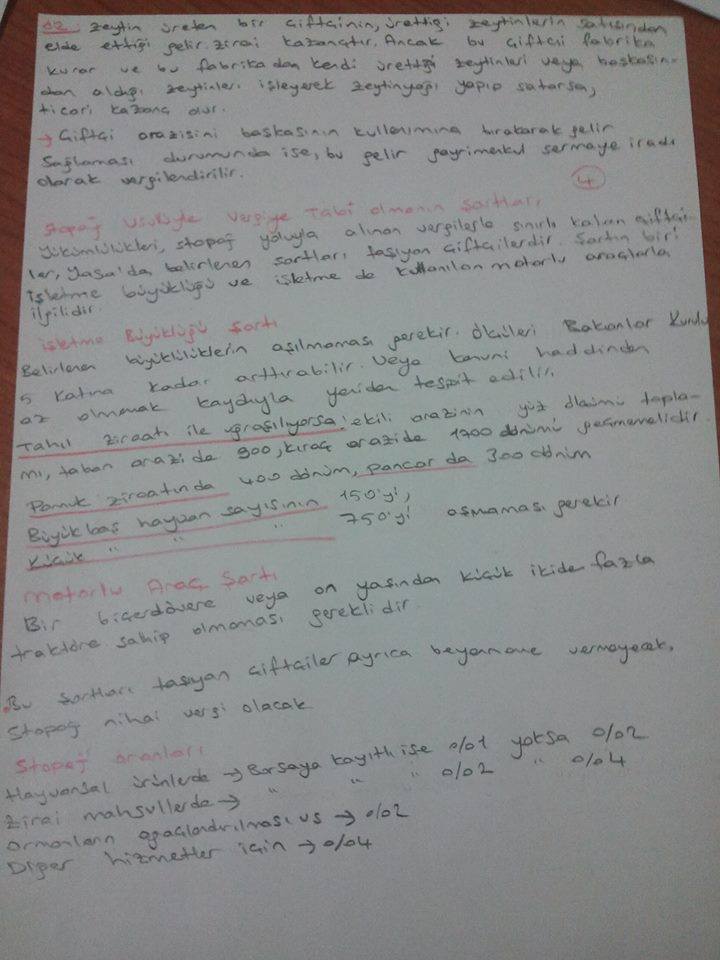 öz: zeytin üreten bir çiftçinin, ürettiği zeytinlerin satışından
elde ettiği gelir zirai kazançtır. Ancak bu çiftçi fabrika
kurar ve bu fabrikadan kendi ürettiği zeytinleri veya başkasın-
dan aldığı zeytinleri işleyerek zeytinyağı yapıp satarsa,
ticari kazanç olur.
→ Çiftçi arazisini başkasının kullanımına bırakarak gelir
Sağlaması durumunda ise, bu gelir gayrimenkul sermaye iradı
olarak vergilendirilir.
4
Stopaj Usulüyle Vergiye Tabi olmanın Şartları
Yükümlülükleri, stopaj yoluyla alınan vergilerle sınırlı kalan çiftçi-
ler, Yasa'da belirlenen şartları taşıyan çiftçilerdir. Şartın biri
işletme büyüklüğü ve işletme de kullanılan motorlu araçlarla
ilgilidir.
işletme Büyüklüğü Şartı
Belirlenen büyüklüklerin aşılmaması gerekir. Ölçüleri Bakanlar Kurulu
5 katına kadar arttırabilir. Veya kanuni haddinden
az olmamak kaydıyla yeniden tespit edilir.
Tahıl ziraatı ile uğraşılıyorsa; ekili arazinin yüz ölçümü topla-
mı, taban arazide 900, kıraç arazide 1700 dönümü geçmemelidir.
Pamuk ziraatında 400 dönüm, pancar da 300 dönüm
Büyükbaş hayvan sayısının 150'yi,
Küçük " " " 750'yi aşmaması gerekir
Motorlu Araç Şartı
Bir biçerdövere veya on yaşından küçük ikiden fazla
traktöre sahip olmaması gereklidir.
.Bu şartları taşıyan çiftçiler ayrıca beyanname vermeyecek,
Stopaj nihai vergi olacak
Stopaj oranları
Hayvansal ürünlerde → Borsaya kayıtlı ise %1 yoksa %2
Zirai mahsullerde → " " " %2 " %4
Ormanların ağaçlandırılması vs → %2
Diğer hizmetler için → %4